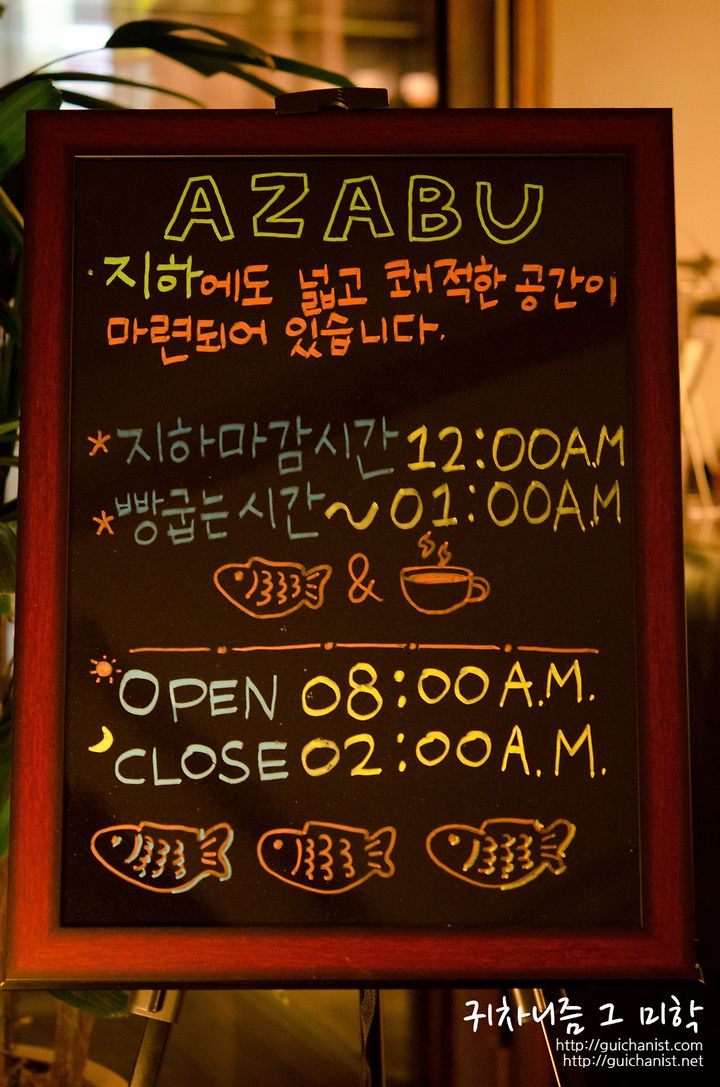 AZABU
· 지하에도 넓고 쾌적한 공간이
마련되어 있습니다.
* 지하마감시간 12:00A.M
* 빵굽는시간 ~ 01:00A.M
&
OPEN 08:00 A.M.
CLOSE 02:00 A.M.
귀차니즘 그 미학
http://guichanist.com
http://guichanist.net